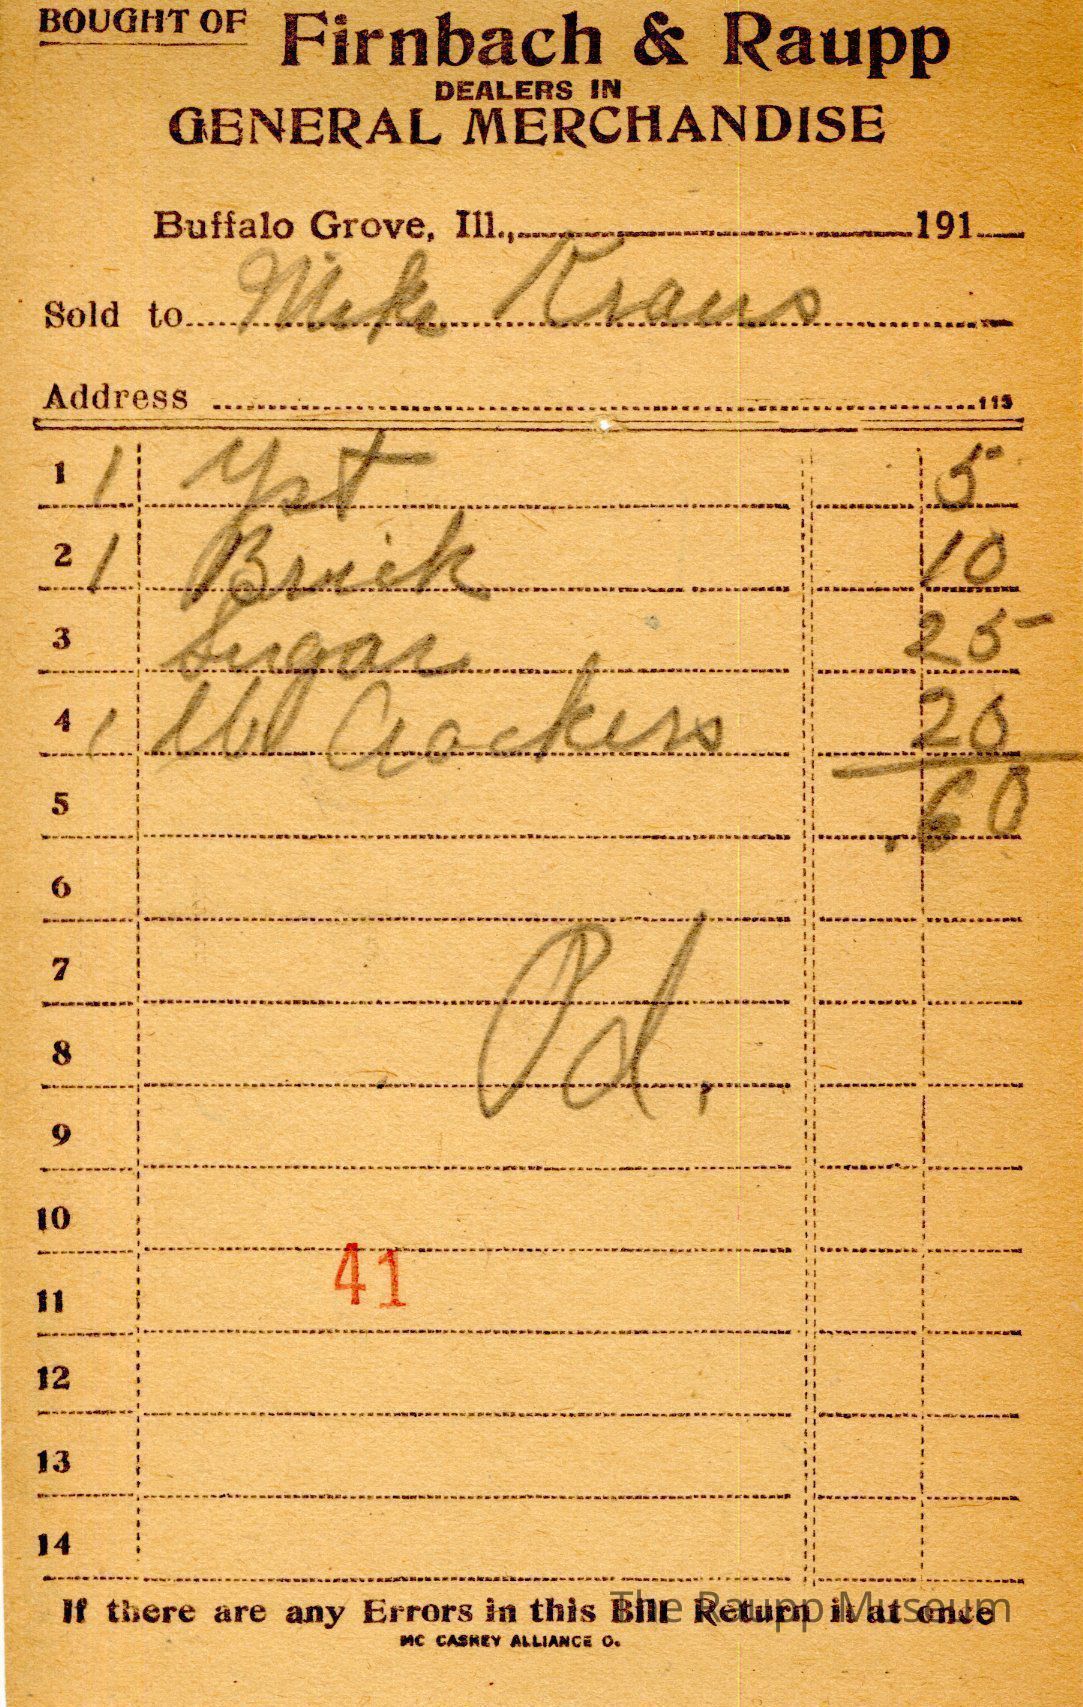 BOUGHT OF Firnbach & Raupp
DEALERS IN
GENERAL MERCHANDISE
Buffalo Grove, Ill., 191
Sold to Mike Kraus
Address 115
1 1 Yst 5
2 1 Brick 10
3 Sugar 25
4 1 lb Crackers 20
5 .60
6
7
Pd.
8
9
10
41
11
12
13
14
If there are any Errors in this Bill Return it at once
The Raupp Museum
MC CASKEY ALLIANCE O.